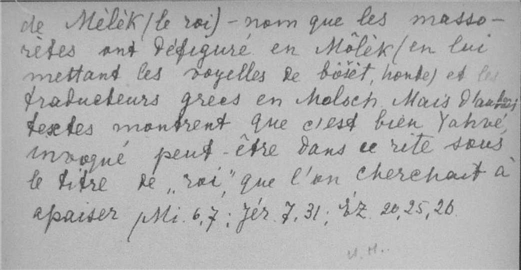 de Mèlèk (le roi) - nom que les masso-
rètes ont défiguré en Môlèk (en lui
mettant les voyelles de bōšèt, honte) et les
traducteurs grecs en Moloch. Mais d'autres
textes montrent que c'est bien Yahvé,
invoqué peut-être dans ce rite sous
le titre de „roi”, que l'on cherchait à
apaiser Mi. 6,7; Jér. 7,31; Éz. 20,25,26.